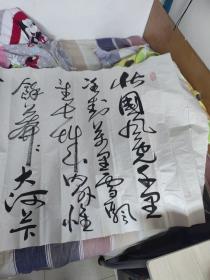 北國風光千里
冰封萬里雪飄
望长城内外惟
餘莽々大河上